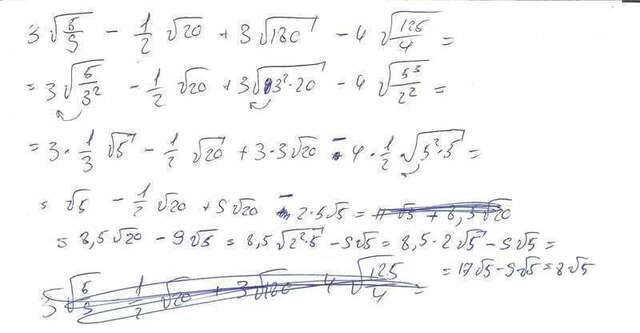 3√(5/9) - 1/2 √20 + 3√180 - 4√(125/4) =
= 3√(5/3²) - 1/2 √20 + 3√(3²·20) - 4√(5³/2²) =
= 3 · 1/3 √5 - 1/2 √20 + 3·3√20 - 4 · 1/2 √(5²·5) =
= √5 - 1/2 √20 + 9√20 - 2·5√5 =
= 8,5√20 - 9√5 = 8,5√(2²·5) - 9√5 = 8,5·2√5 - 9√5 =
= 17√5 - 9√5 = 8√5
3√(5/9) 1/2 √20 + 3√180 4√(125/4) =